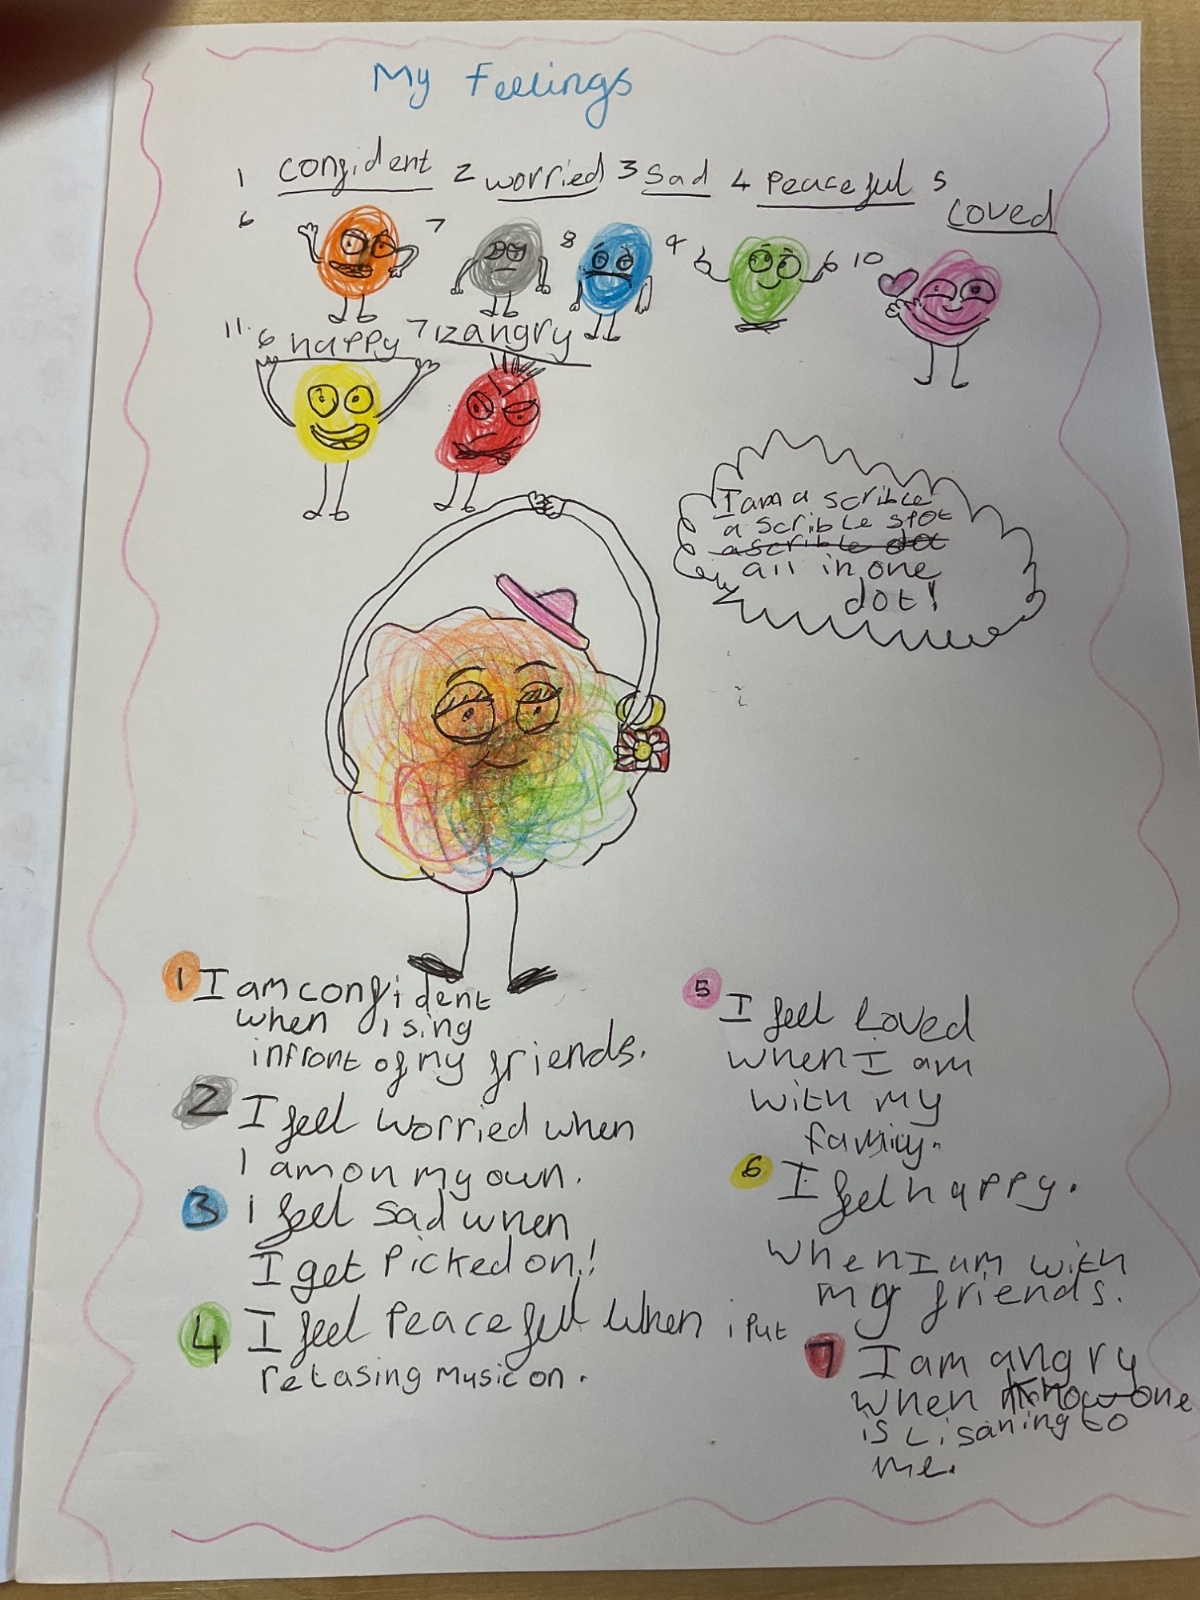 My Feelings
1 confident 2 worried 3 Sad 4 Peaceful 5
Loved
6 7 8 9 10
11. 6 happy 7 12 angry
I am a scrible
a scrible spot
a scrible dot
all in one
dot!
1 I am confident
when i sing
infront of my friends.
2 I feel worried when
I am on my own.
3 I feel sad when
I get Picked on!
4 I feel Peaceful when i Put
relasing Music on.
5 I feel Loved
when I am
with my
family.
6 I feel happy.
when I am with
my friends.
7 I am angry
when know one
is Lisaning to
me.